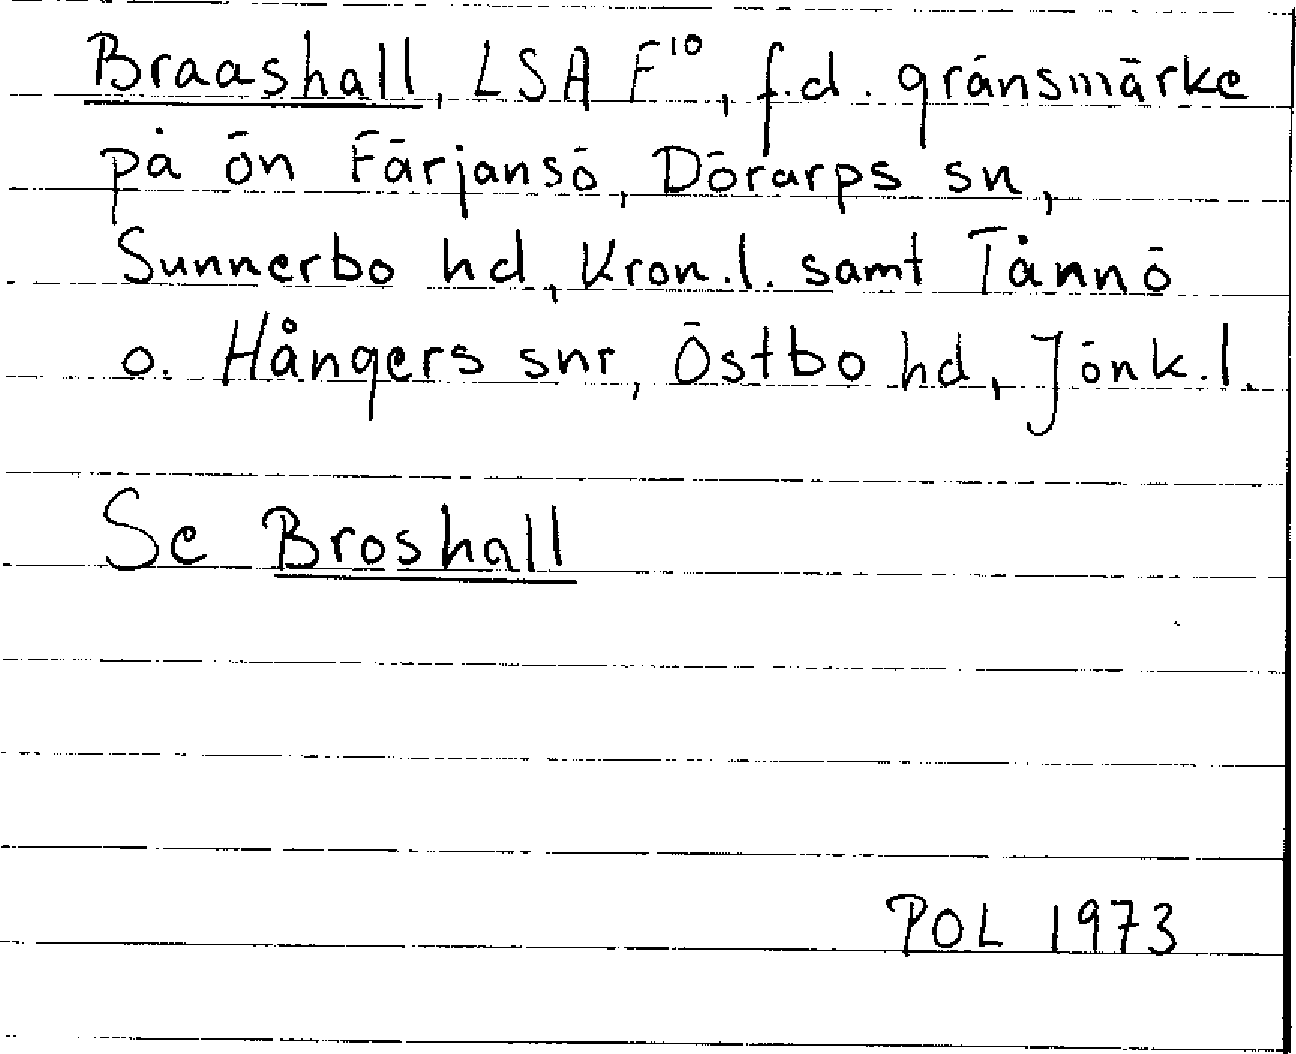 Braashall, LSA F¹⁰, f.d. gränsmärke
på ön Färjansö, Dörarps sn,
Sunnerbo hd, Kron.l. samt Tånnö
o. Hångers snr, Östbo hd, Jönk.l.
Se Broshall
POL 1973